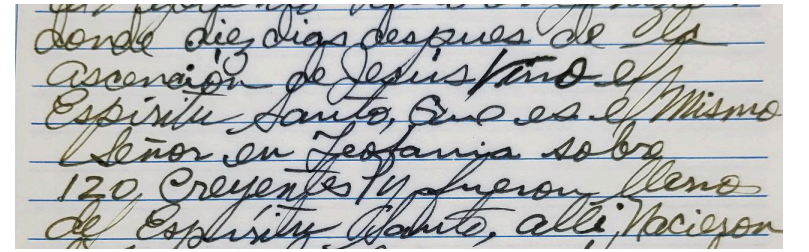 donde diez dias despues de la
ascención de Jesús Vino el
Espíritu Santo, Que es el Mismo
Señor en Teofania sobre
120 Creyentes y fueron lleno
del Espíritu Santo, alli Nacieron